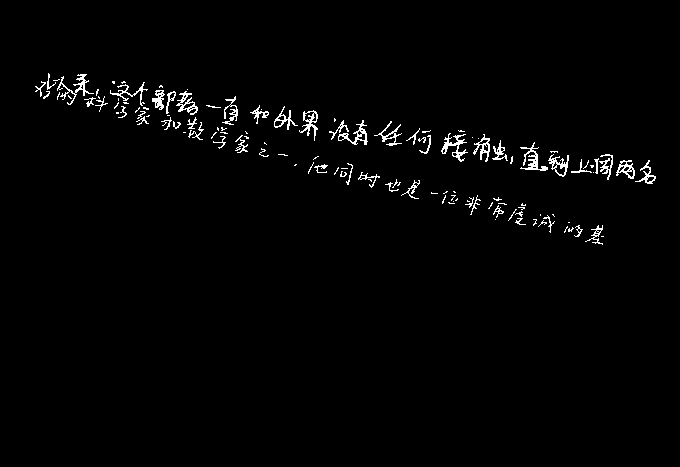 来,这个部落一直和外界没有任何接触,直到上周两名
的科学家和数学家之一,他同时也是一位非常虔诚的基